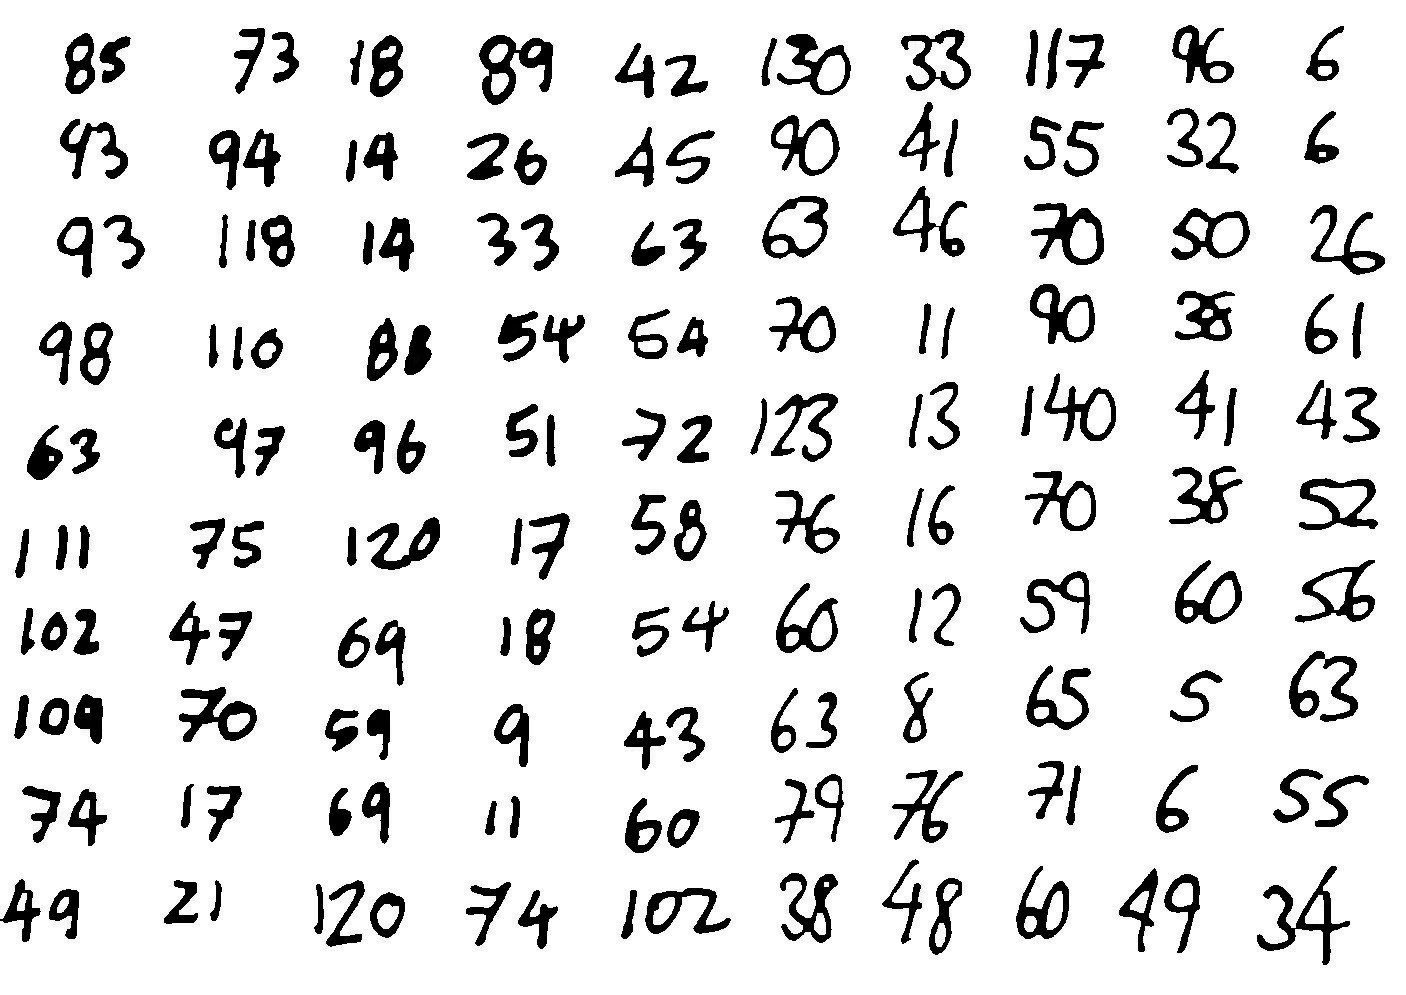 85 73 18 89 42 130 33 117 96 6
93 94 14 26 45 90 41 55 32 6
93 118 14 33 63 63 46 70 50 26
98 110 88 54 54 70 11 90 38 61
63 97 96 51 72 123 13 140 41 43
111 75 120 17 58 76 16 70 38 52
102 47 69 18 54 60 12 59 60 56
109 70 59 9 43 63 8 65 5 63
74 17 69 11 60 79 76 71 6 55
49 21 120 74 102 38 48 60 49 34